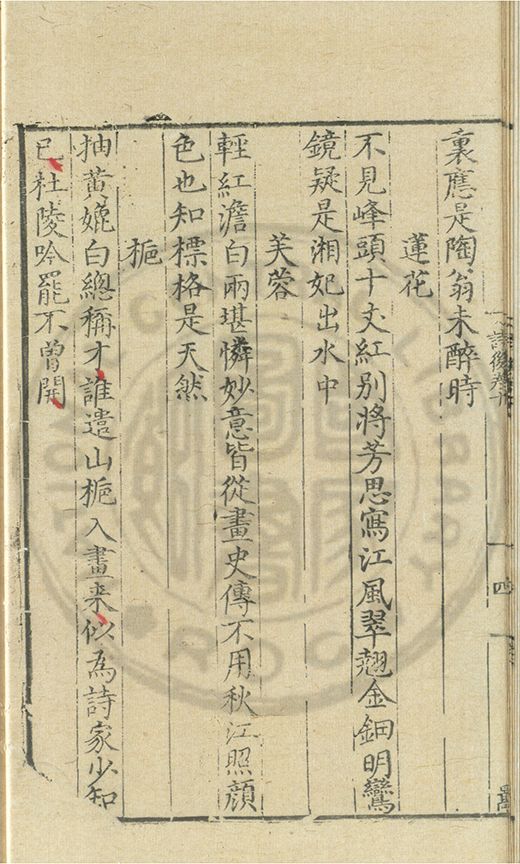 裏應是陶翁未醉時
蓮花
不見峰頭十丈紅別將芳思寫江風翠翹金鈿明鸞
鏡疑是湘妃出水中
芙蓉
輕紅澹白兩堪憐妙意皆從畫史傳不用秋江照顏
色也知標格是天然
梔
抽黃媲白總稱才誰遣山梔入畫來似為詩家少知
已杜陵吟罷不曾開
詩後卷十
四